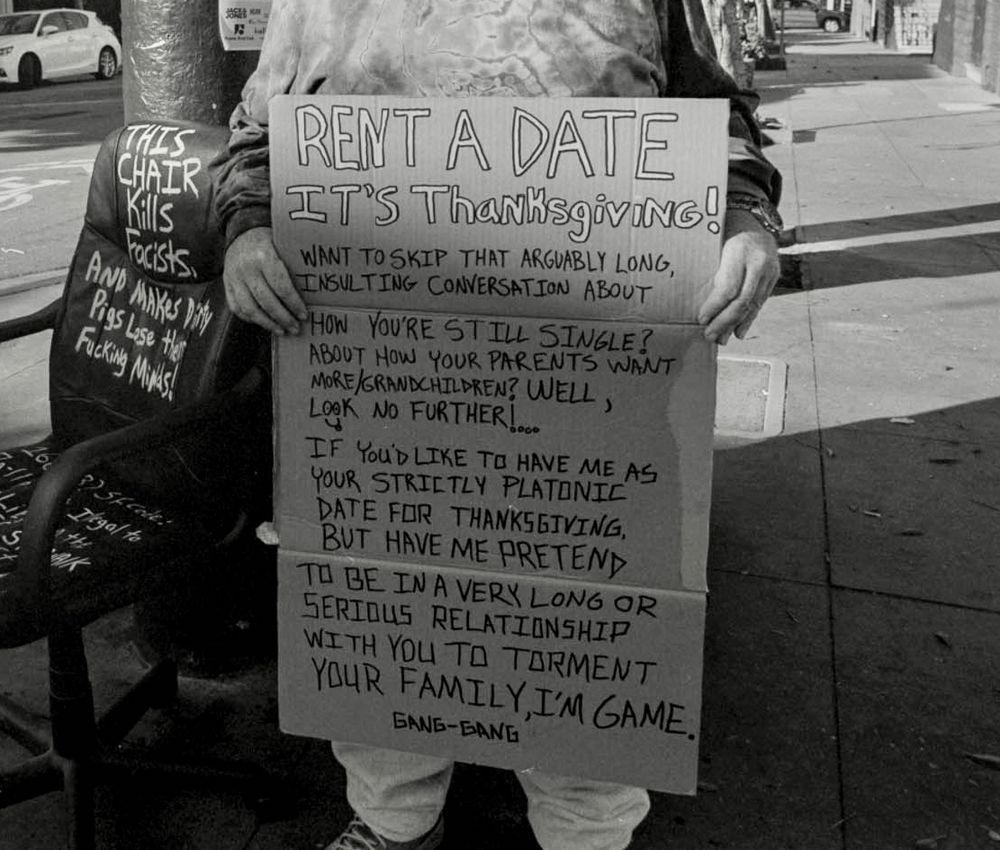 JACK&
JONES
THIS
CHAIR
Kills
Facists,
AND MAKES Dirty
Pigs Lose their
Fucking Minds!
RENT A DATE
IT'S ThanksgiviNG!
WANT TO SKIP THAT ARGUABLY LONG,
INSULTING CONVERSATION ABOUT
HOW YOU'RE STILL SINGLE?
ABOUT HOW YOUR PARENTS WANT
MORE/GRANDCHILDREN? WELL,
LOOK NO FURTHER!....
IF YOU'D LIKE TO HAVE ME AS
YOUR STRICTLY PLATONIC
DATE FOR THANKSGIVING,
BUT HAVE ME PRETEND
TO BE IN A VERY LONG OR
SERIOUS RELATIONSHIP
WITH YOU TO TORMENT
YOUR FAMILY, I'M GAME.
GANG-GANG